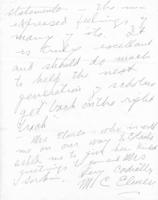 statements — The un-
expressed feelings of
many of us. It
is truly excellent
and should do much
to help the next
generation of scholars
get back on the right
track".
Mrs Eliseev - who is with
me on our way to
asks me to give her kindest
greetings to you and Mrs
Sorokin.
Very Cordially